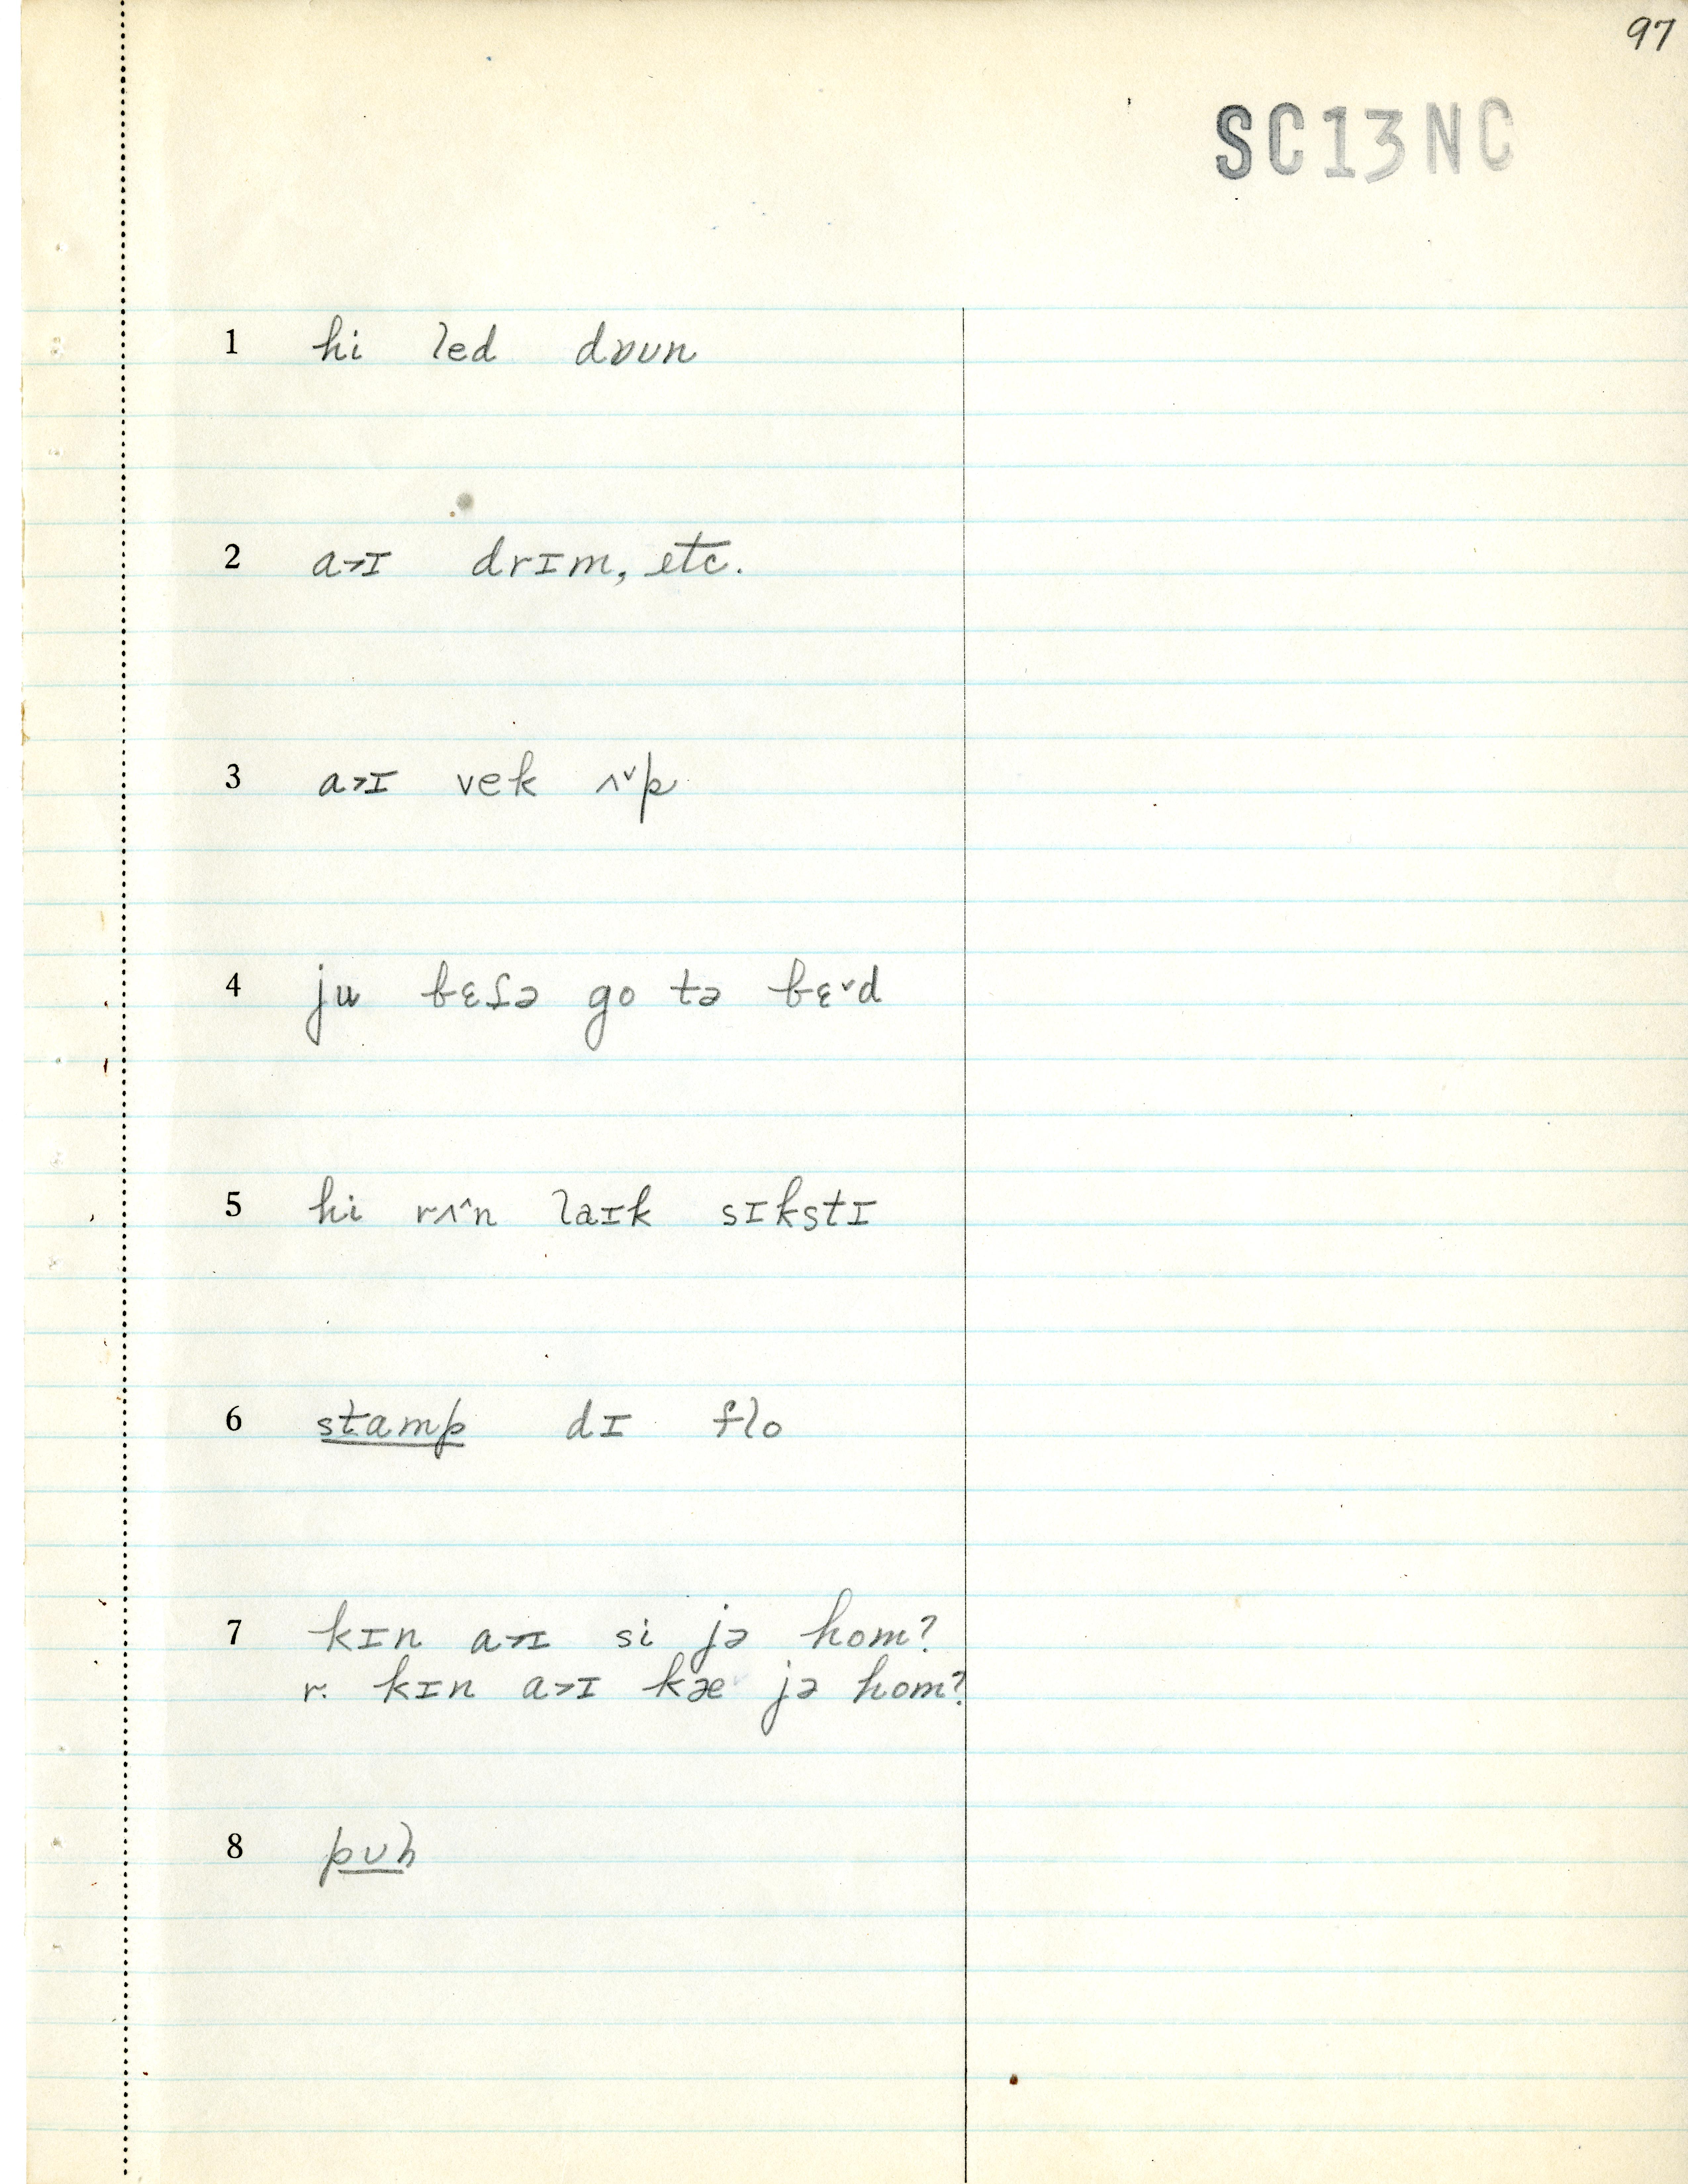 97
SC13NC
1 hi led dɒʊn
2 a˃ɪ drɪm, etc.
3 a˃ɪ vek ʌ˅p
4 ju bɛſə go tə bɛ˅d
5 hi rʌ˄n laɪk sɪkstɪ
6 stamp dɪ flo
7 kɪn a˃ɪ si jə hom?
r. kɪn a˃ɪ kæ jə hom?
8 pʊɦ